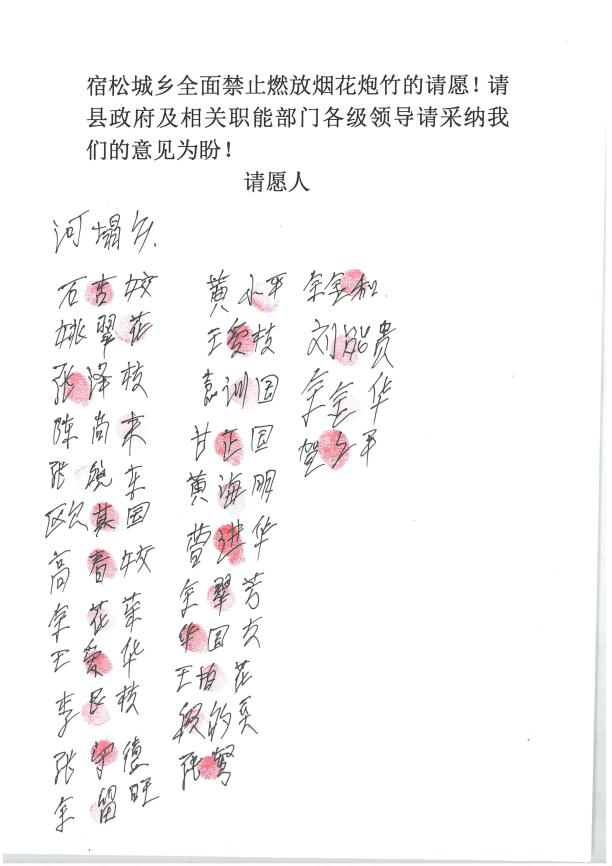 宿松城乡全面禁止燃放烟花炮竹的请愿！请
县政府及相关职能部门各级领导请采纳我
们的意见为盼！
请愿人
河塌乡
石吉姣
姚翠花
张泽枝
陈尚来
张晓东
欧其国
高春姣
余花英
王爱华
李民枝
张守德
余留旺
黄小平
王爱枝
训国
甘正国
黄海明
曹进华
余翠芳
华国友
王柏花
段的英
张驾
余金和
刘贵
余金华
贺平